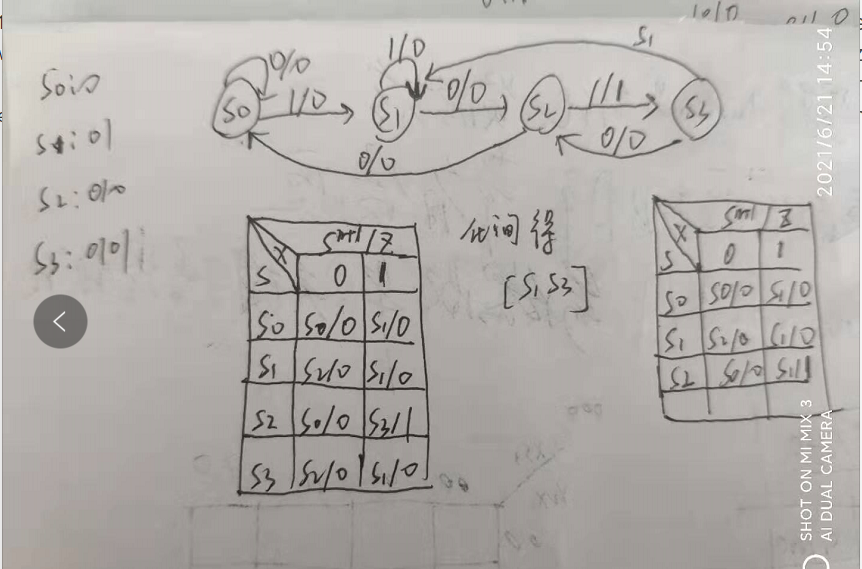 0/0
1/0
S1
S0
1/0
S1
0/0
S2
1/1
S3
0/0
0/0
S2:
S3:
X
S^{n+1}/Z
S
0
1
S0
S0/0
S1/0
S1
S2/0
S1/0
S2
S0/0
S3/1
S3
S2/0
S1/0
化简得
[S1 S3]
X
S^{n+1}/Z
S
0
1
S0
S0/0
S1/0
S1
S2/0
S1/0
S2
S0/0
S1/1
2021/6/21 14:54
SHOT ON MI MIX 3
AI DUAL CAMERA